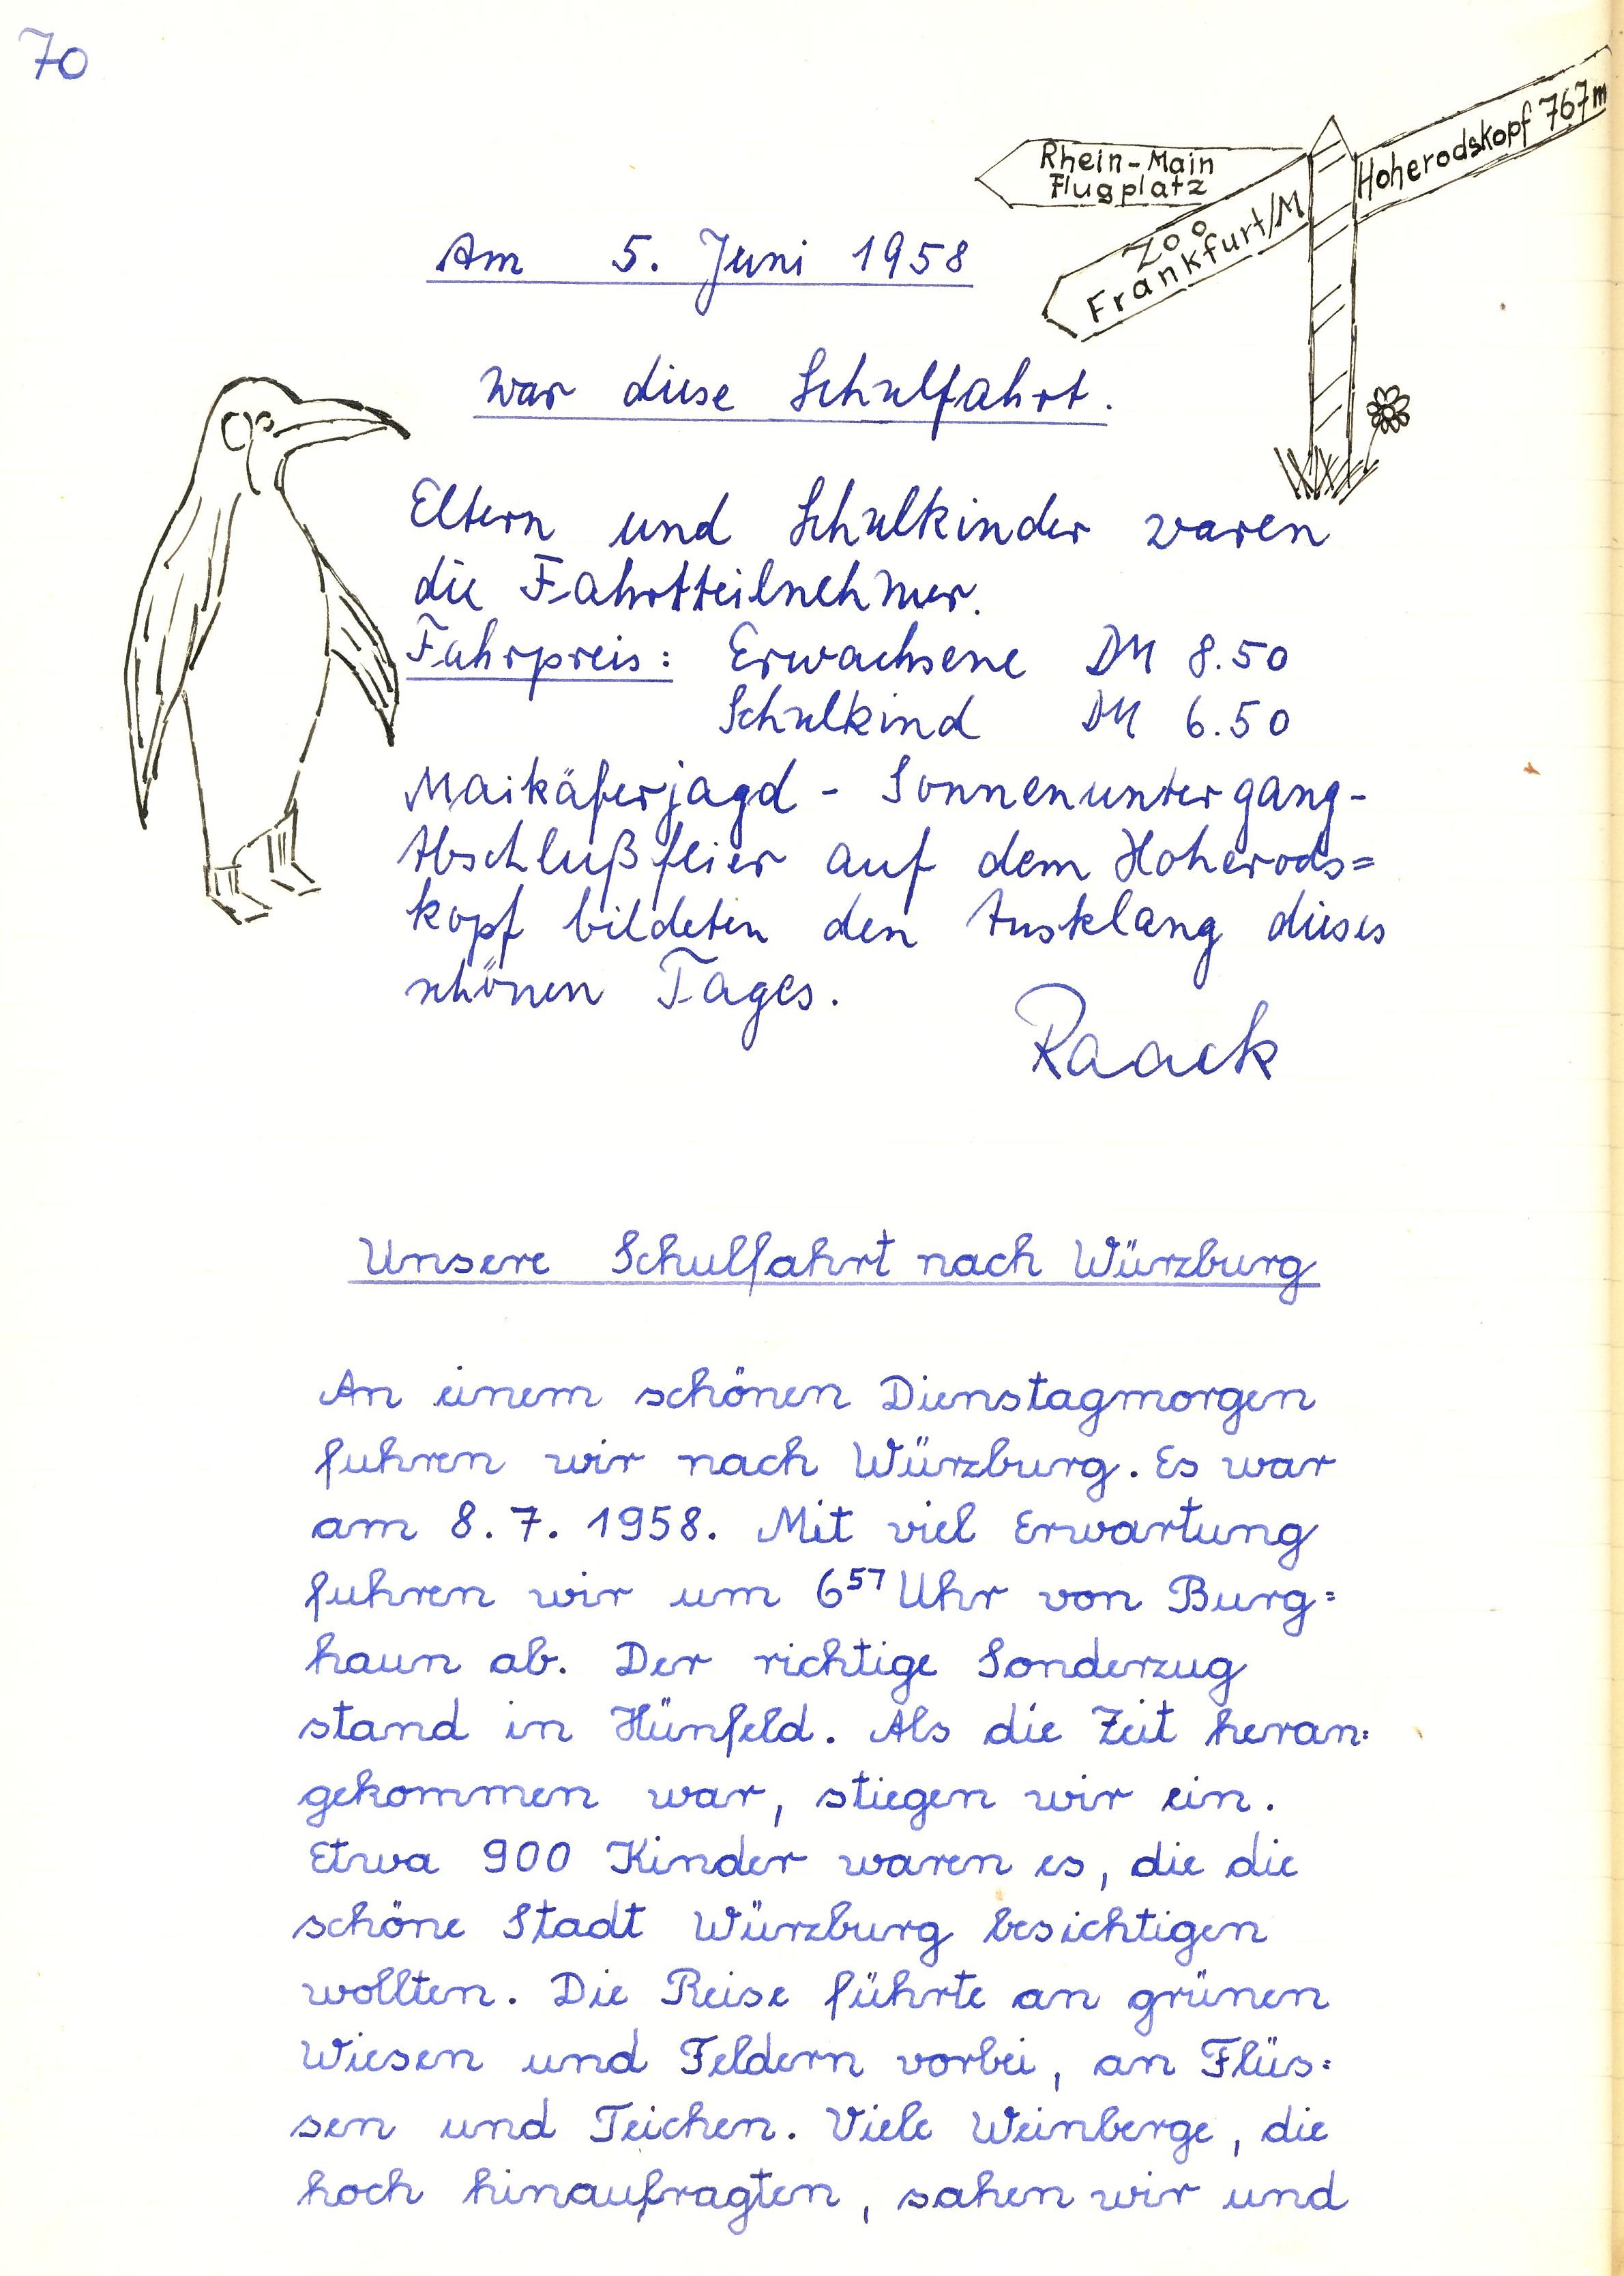 70
Rhein-Main
Flugplatz
Zoo
Frankfurt/M
Hoherodskopf 767m
Am 5. Juni 1958
war diese Schulfahrt.
Eltern und Schulkinder waren
die Fahrtteilnehmer.
Fahrpreis: Erwachsene DM 8.50
Schulkind DM 6.50
Maikäferjagd - Sonnenuntergang-
Abschlußfeier auf dem Hoherods=
kopf bildeten den Ausklang dieses
schönen Tages.
Raack
Unsere Schulfahrt nach Würzburg
An einem schönen Dienstagmorgen
fuhren wir nach Würzburg. Es war
am 8. 7. 1958. Mit viel Erwartung
fuhren wir um 6⁵⁷ Uhr von Burg=
haun ab. Der richtige Sonderzug
stand in Hünfeld. Als die Zeit heran=
gekommen war, stiegen wir ein.
Etwa 900 Kinder waren es, die die
schöne Stadt Würzburg besichtigen
wollten. Die Reise führte an grünen
Wiesen und Feldern vorbei, an Flüs=
sen und Teichen. Viele Weinberge, die
hoch hinaufragten, sahen wir und